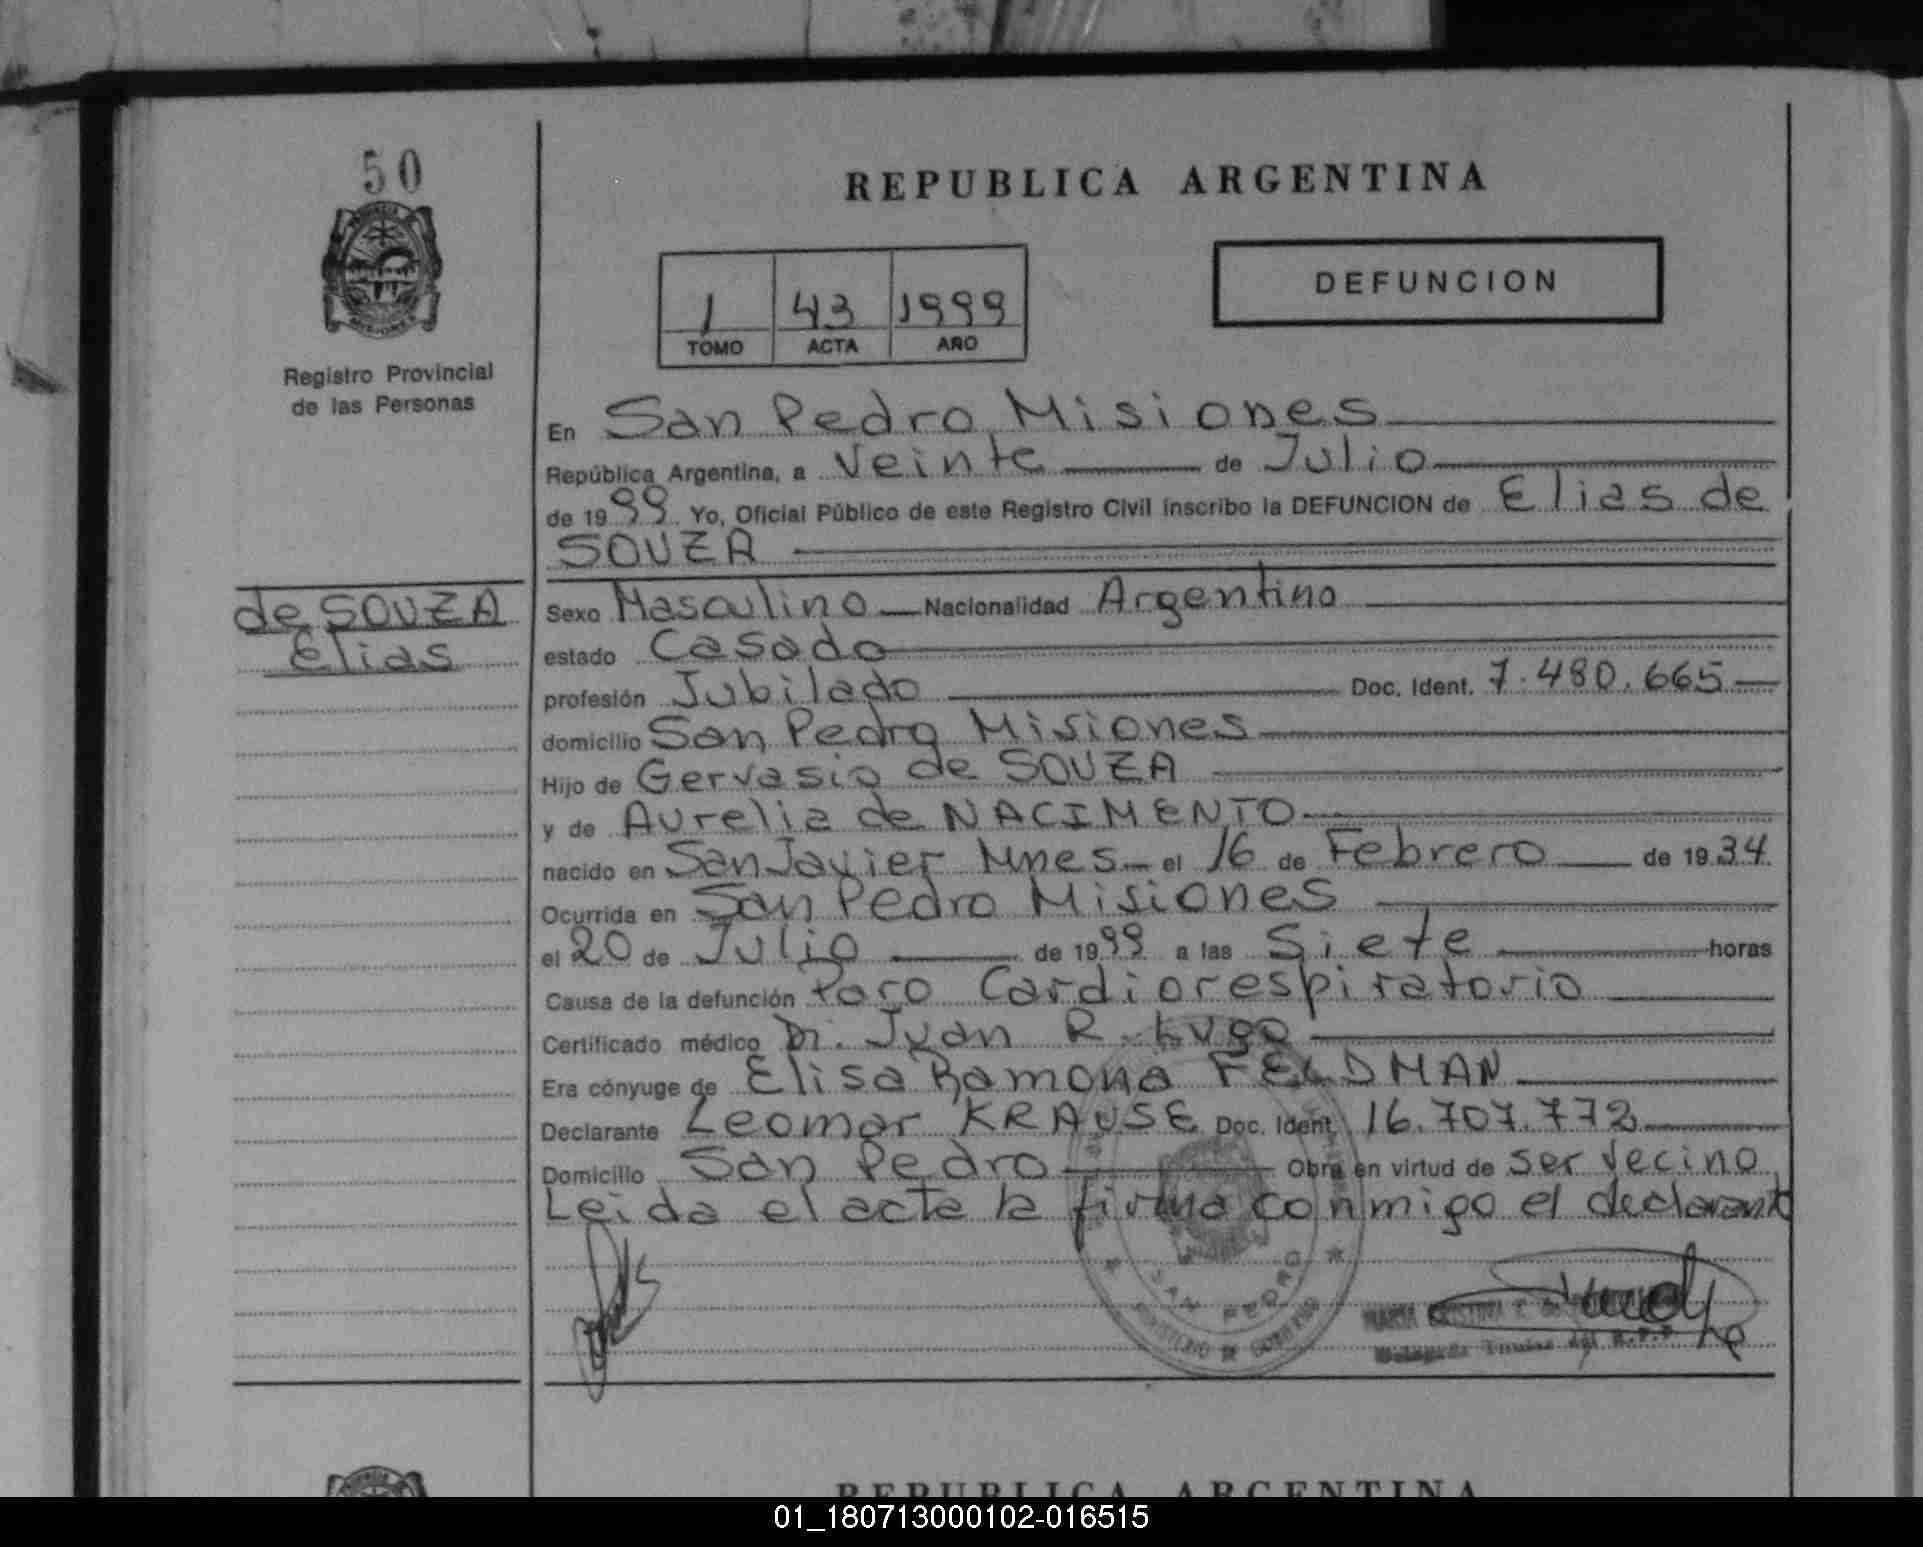 50
REPUBLICA ARGENTINA
DEFUNCION
1 43 1999
TOMO ACTA AÑO
Registro Provincial
de las Personas
En San Pedro Misiones
República Argentina, a Veinte de Julio
de 1999 Yo, Oficial Público de este Registro Civil inscribo la DEFUNCION de Elias de
SOUZA
de SOUZA
Elias
Sexo Masculino Nacionalidad Argentino
estado Casado
profesión Jubilado Doc. Ident. 7.480.665
domicilio San Pedro Misiones
Hijo de Gervasio de SOUZA
y de Aurelia de NACIMENTO
nacido en San Javier Mnes el 16 de Febrero de 1934
Ocurrida en San Pedro Misiones
el 20 de Julio de 1999 a las Siete horas
Causa de la defunción Paro Cardiorespiratorio
Certificado médico Dr. Juan R. Lugo
Era cónyuge de Elisa Ramona FELDMAN
Declarante Leomar KRAUSE Doc. Ident. 16.707.772
Domicilio San Pedro Obra en virtud de ser vecino
Leida el acta la firma conmigo el declarante
SAN PEDRO
REPUBLICA ARGENTINA
01_180713000102-016515